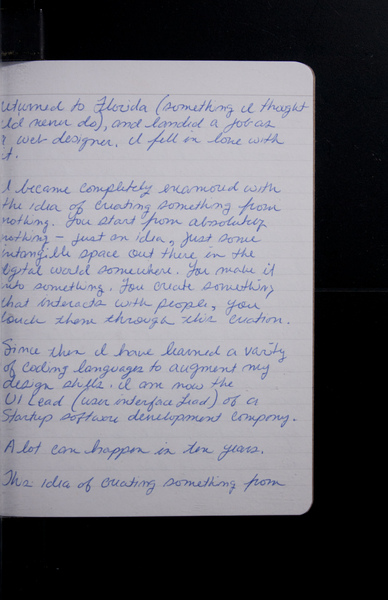 returned to Florida (something I thought
I'd never do), and landed a job as
a web designer. I fell in love with
it.
I became completely enamored with
the idea of creating something from
nothing. You start from absolutely
nothing – just an idea, just some
intangible space out there in the
digital world somewhere. You make it
into something. You create something
that interacts with people, you
touch them through this cration.
Since then I have learned a varity
of coding languages to augment my
design skills. I am now the
UI Lead (user interface Lead) of a
Startup software development company.
A lot can happen in ten years.
This idea of creating something from